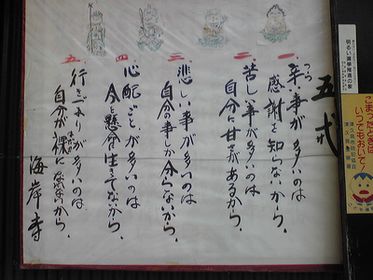 五戒
一、辛い事が多いのは
つらい
感謝を知らないから。
二、苦しい事が多いのは
自分に甘えがあるから。
三、悲しい事が多いのは
自分の事しか分らないから。
四、心配ごとが多いのは
今を懸命に生きてないから。
五、行きづまりが多いのは
自分が裸になれないから。
海岸寺
こまったときは
いつでもおいで！